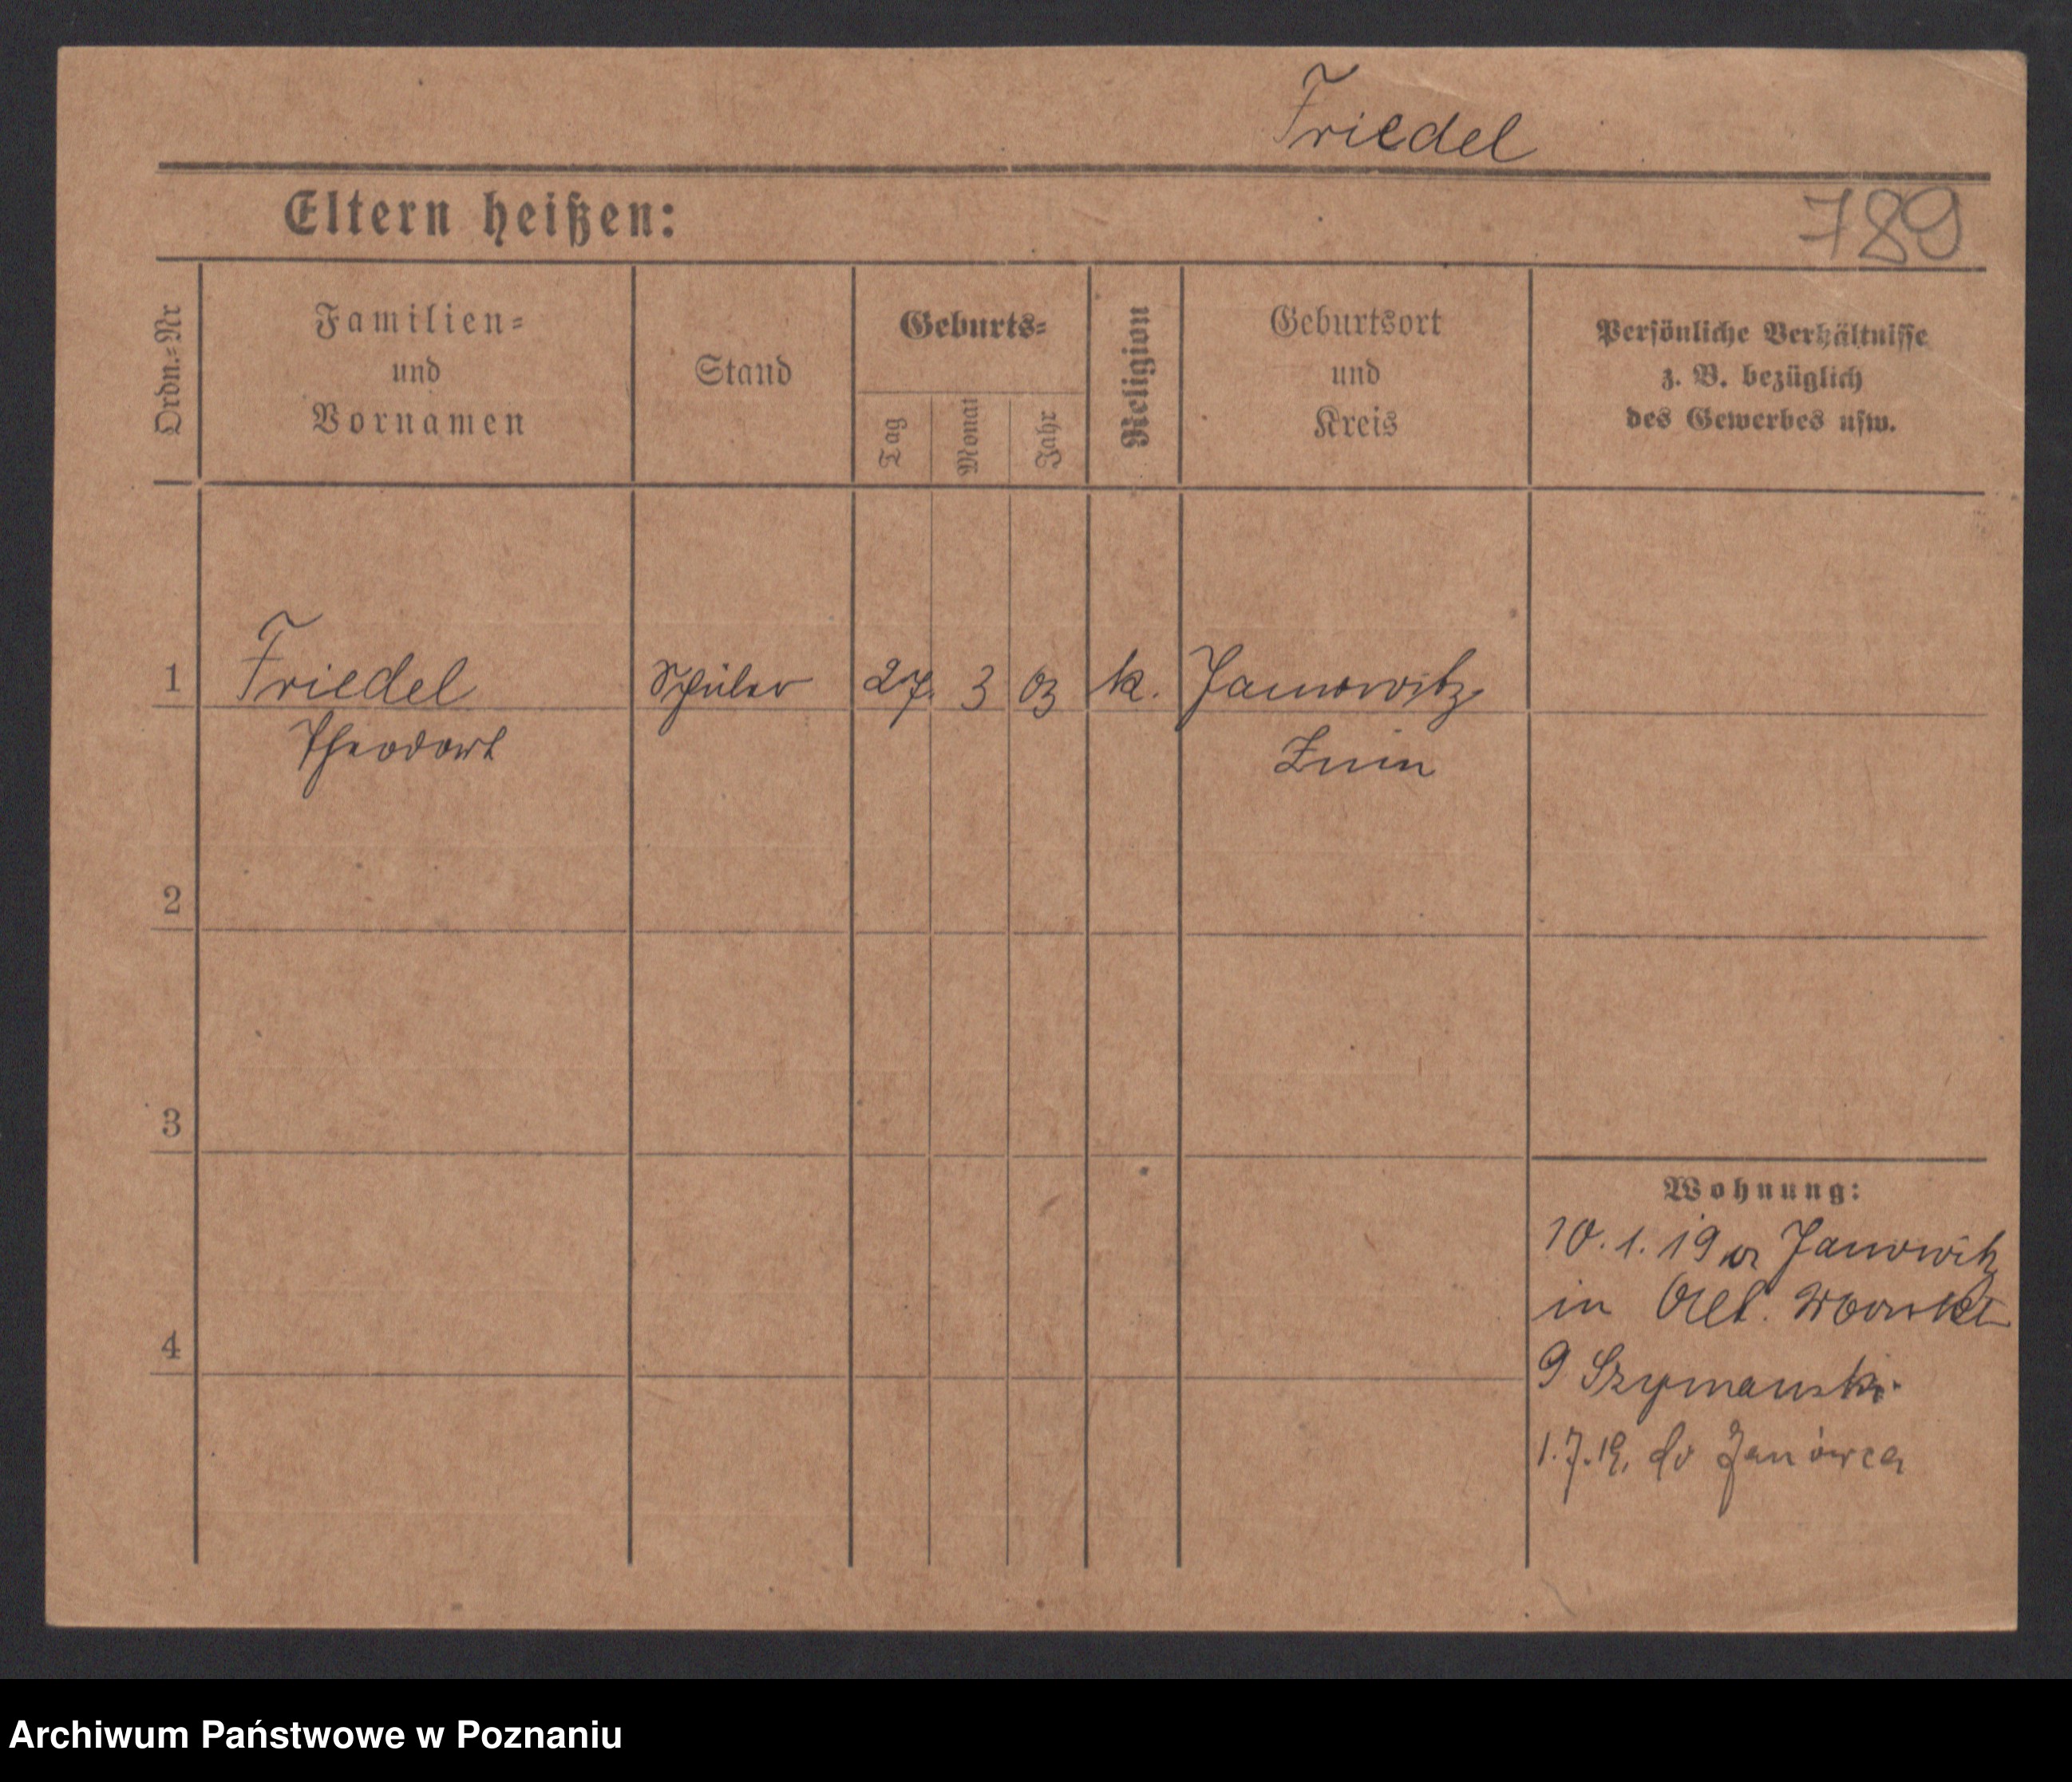 Friedel
Eltern heißen:
789
Ordn.=Nr
Familien=
und
Vornamen
Stand
Geburts=
Tag
Monat
Jahr
Religion
Geburtsort
und
Kreis
Persönliche Verhältnisse
z. B. bezüglich
des Gewerbes usw.
1
Friedel
Schüler
27.
3
03
k.
Janowitz
Theodor
Znin
2
3
4
Wohnung:
10.1.19 Janowitz
in
9 Szymanski
1.7.19. do Janówca
Archiwum Państwowe w Poznaniu